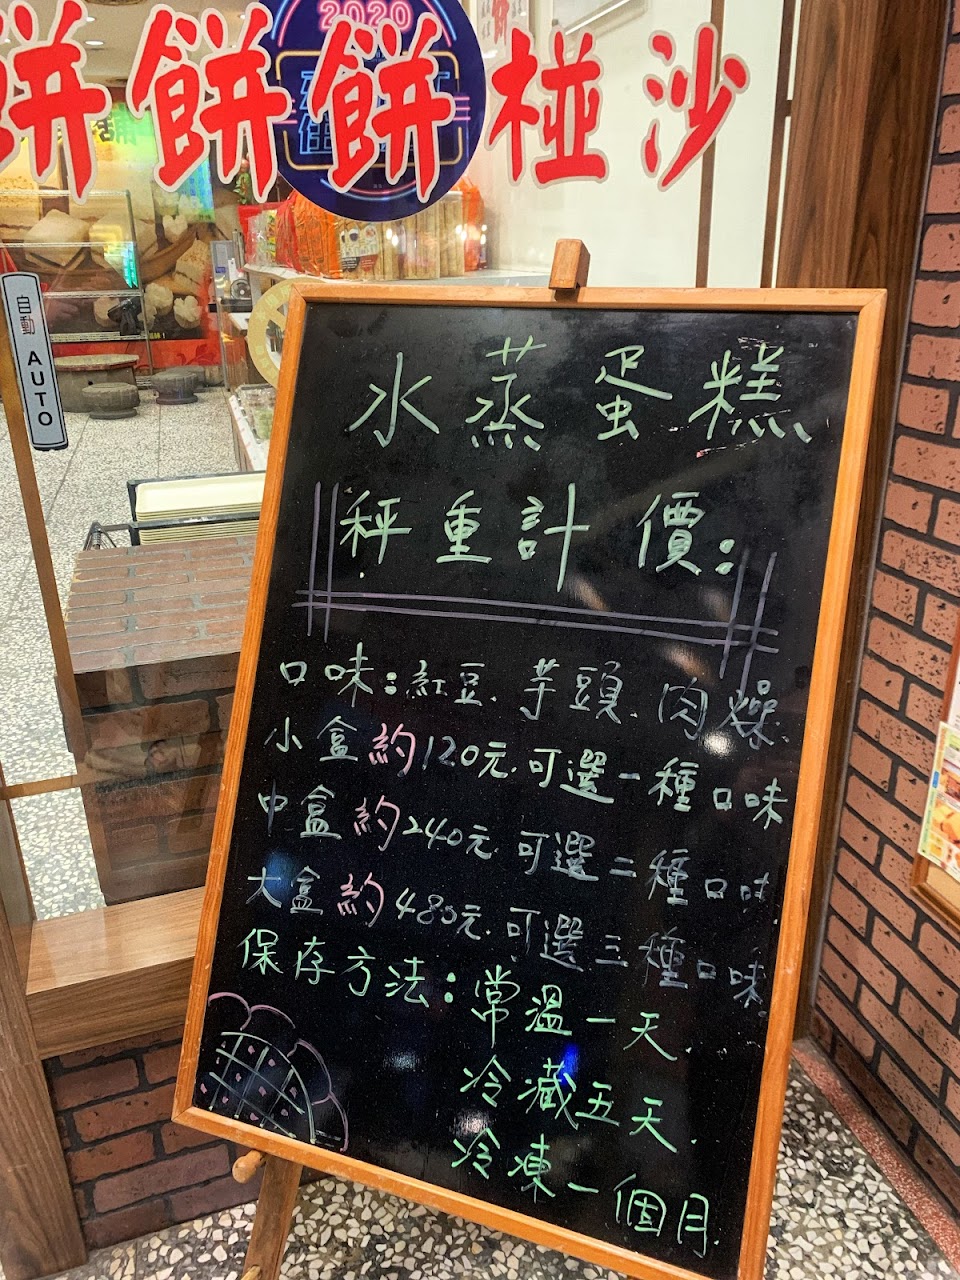 2020
餅餅餅椪沙
自動 AUTO
水蒸蛋糕
秤重計價:
口味:紅豆.芋頭.肉燥.
小盒約120元.可選一種口味
中盒約240元.可選二種口味
大盒約480元.可選三種口味.
保存方法:常溫一天.
冷藏五天.
冷凍一個月.